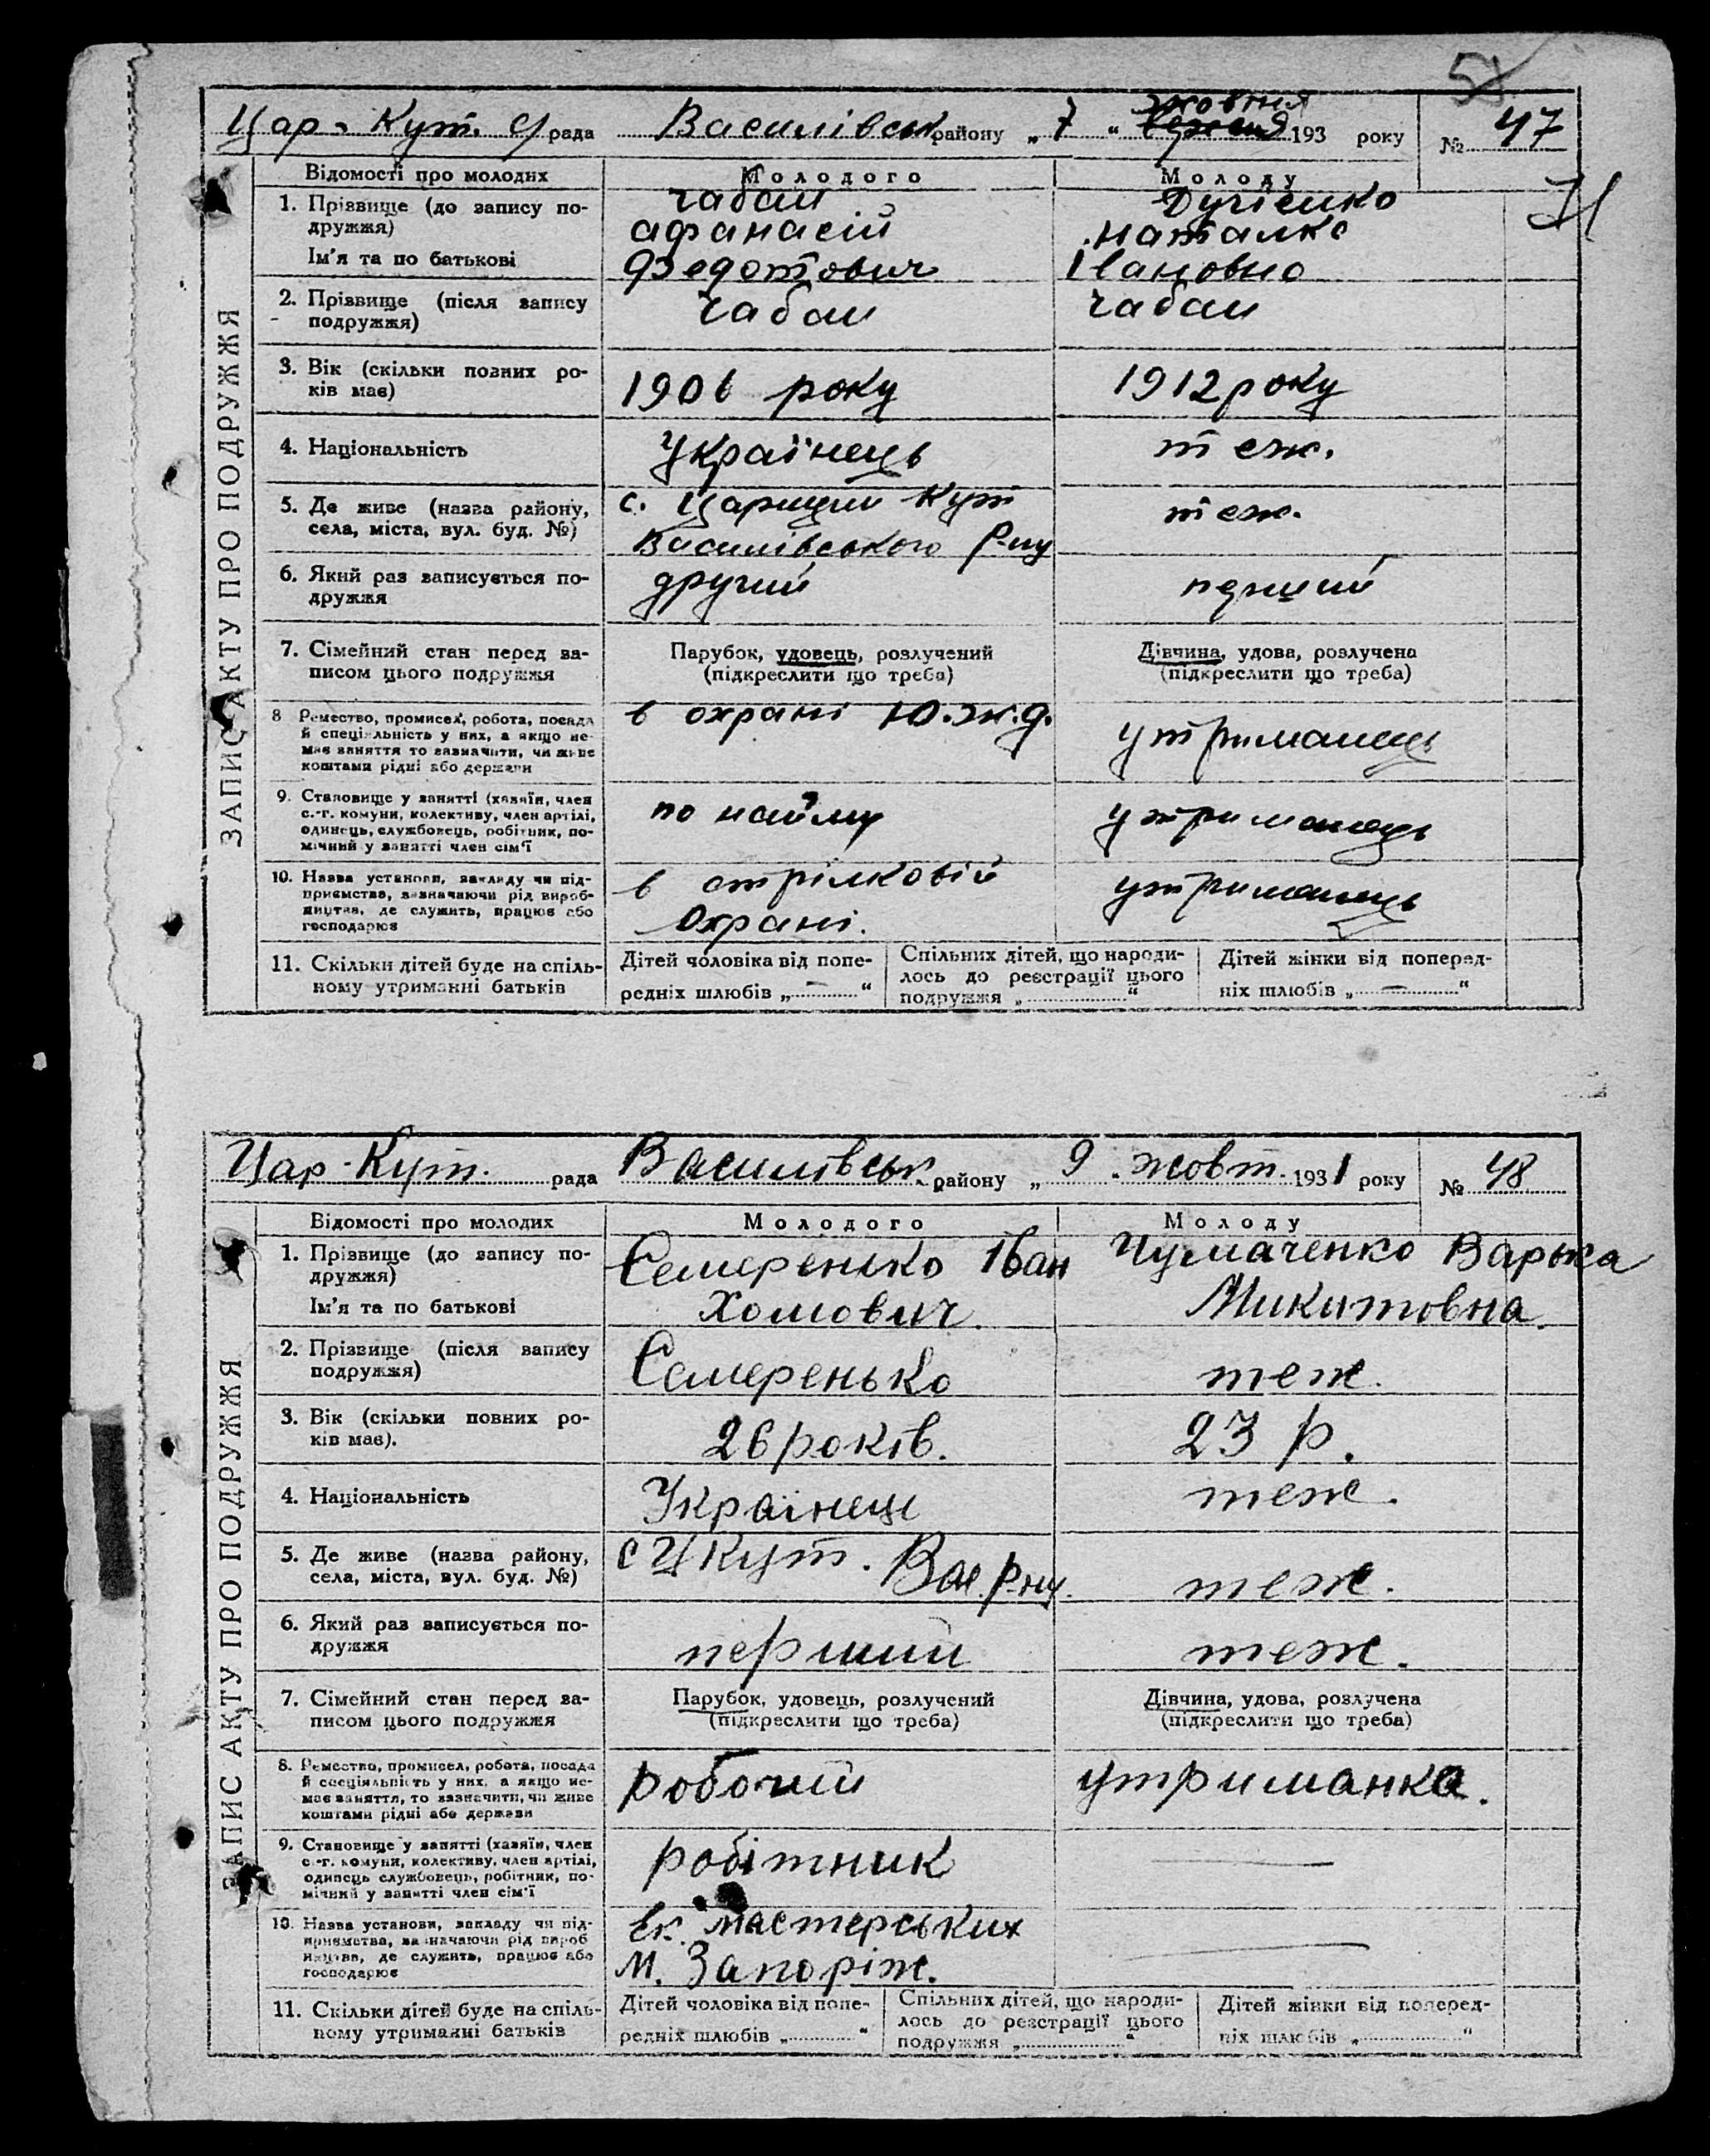 51
Цар. Кут. С/ рада Василівськ району „ 7 “ березня жовтня 193 року № 47
Відомості про молодих Молодого Молоду
1. Прізвище (до запису по- Чабан
дружжя) Афанасій Наталка
Ім'я та по батькові Федотович Івановна
2. Прізвище (після запису Чабан Чабан
подружжя)
3. Вік (скільки повних ро- 1906 року 1912 року
ків має)
4. Національність Українець теж.
5. Де живе (назва району, с. Царицин Кут теж.
села, міста, вул. буд. №) Василівського р-ну
6. Який раз записується по- другий перший
дружжя
7. Сімейний стан перед за- Парубок, удовець, розлучений Дівчина, удова, розлучена
писом цього подружжя (підкреслити що треба) (підкреслити що треба)
8 Ремество, промисел, робота, посада в охрані Ю.ж.д. утриманець
й спеціяльність у них, а якщо не-
має заняття то зазначити, чи живе
коштами рідні або держави
9. Становище у занятті (хазяїн, член по найму утриманець
с.-г. комуни, колективу, член артілі,
одинець, службовець, робітник, по-
мічний у занятті член сім'ї
10. Назва установи, закладу чи під- в стрілковій утриманець
приємства, зазначаючи рід вироб- Охрані.
ництва, де служить, працює або
господарює
11. Скільки дітей буде на спіль- Дітей чоловіка від попе- Спільних дітей, що народи- Дітей жінки від поперед-
ному утриманні батьків редніх шлюбів „ — “ лось до реєстрації цього ніх шлюбів „ — “
подружжя „ “
ЗАПИС АКТУ ПРО ПОДРУЖЖЯ
Цар-Кут. рада Василівськ. району „ 9 . жовт. 1931 року № 48
Відомості про молодих Молодого Молоду
1. Прізвище (до запису по- Семеренько Іван Чумаченко Варька
дружжя)
Ім'я та по батькові Хомович. Микитовна.
2. Прізвище (після запису Семеренько теж.
подружжя)
3. Вік (скільки повних ро- 26 років. 23 р.
ків має).
4. Національність Українець теж.
5. Де живе (назва району, с Ц Кут. Вас. р-ну. теж.
села, міста, вул. буд. №)
6. Який раз записується по- перший теж.
дружжя
7. Сімейний стан перед за- Парубок, удовець, розлучений Дівчина, удова, розлучена
писом цього подружжя (підкреслити що треба) (підкреслити що треба)
8. Ремество, промисел, робота, посада робочий утриманка.
й спеціяльність у них, а якщо не-
має заняття, то зазначити, чи живе
коштами рідні або держави
9. Становище у занятті (хазяїн, член робітник —
с.-г. комуни, колективу, член артілі,
одинець службовець, робітник, по-
мічний у занятті член сім'ї
10. Назва установи, закладу чи під- мастерських —
приємства, зазначаючи рід вироб м. Запоріж.
ництва, де служить, працює або
господарює
11. Скільки дітей буде на спіль- Дітей чоловіка від попе- Спільних дітей, що народи- Дітей жінки від поперед-
ному утриманні батьків редніх шлюбів „ “ лось до реєстрації цього ніх шлюбів „ “
подружжя „ “
ЗАПИС АКТУ ПРО ПОДРУЖЖЯ